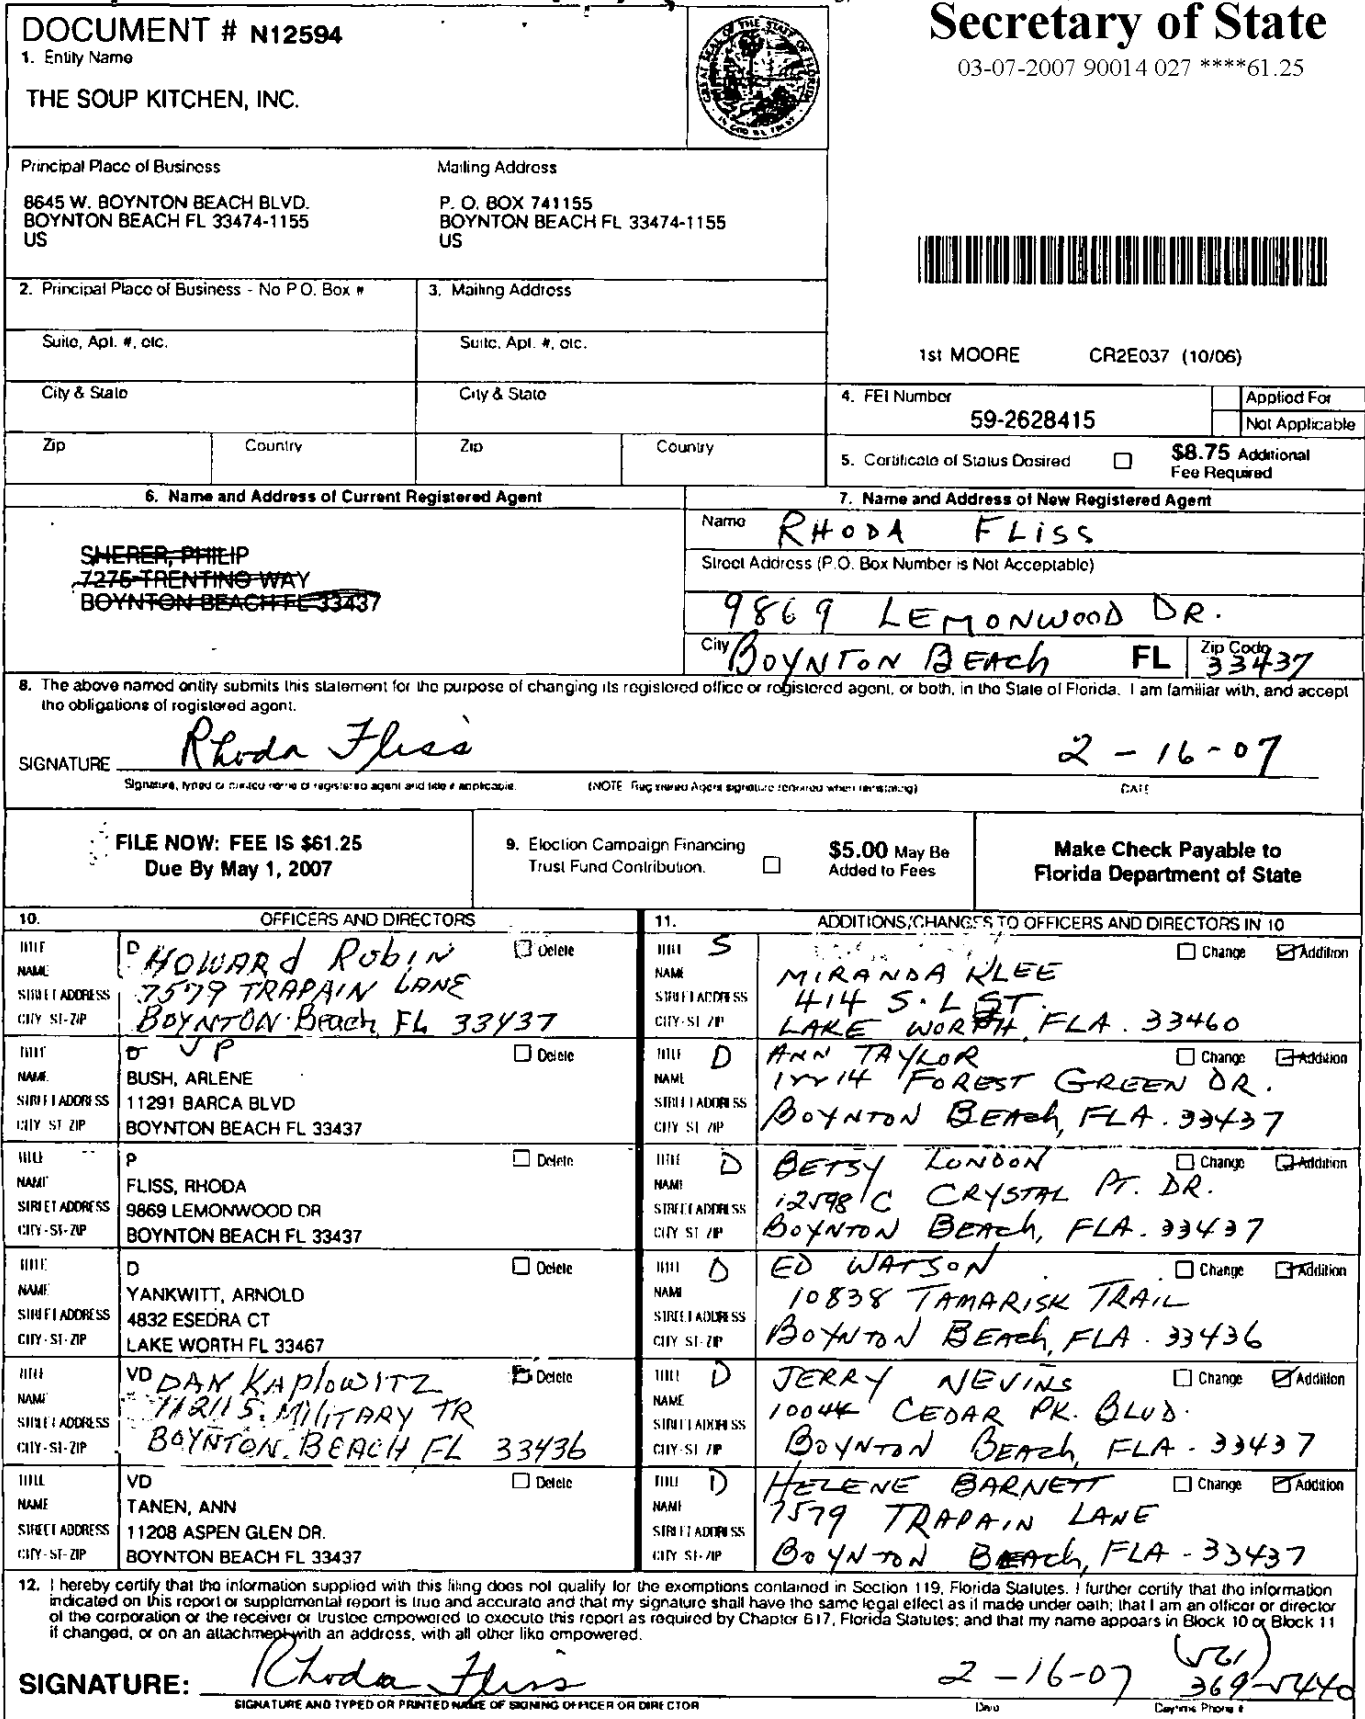 DOCUMENT # N12594
1. Entity Name
THE SOUP KITCHEN, INC.
Secretary of State
03-07-2007 90014 027 ****61.25
Principal Place of Business
8645 W. BOYNTON BEACH BLVD.
BOYNTON BEACH FL 33474-1155
US
Mailing Address
P. O. BOX 741155
BOYNTON BEACH FL 33474-1155
US
2. Principal Place of Business - No P O. Box #
3. Mailing Address
Suite, Apt. #, etc.
Suite, Apt. #, etc.
1st MOORE CR2E037 (10/06)
City & State
City & State
4. FEI Number
59-2628415
Applied For
Not Applicable
Zip Country
Zip Country
5. Certificate of Status Desired
$8.75 Additional
Fee Required
6. Name and Address of Current Registered Agent
SHERER, PHILIP
7275 TRENTINO WAY
BOYNTON BEACH FL 33437
7. Name and Address of New Registered Agent
Name RHODA FLISS
Street Address (P.O. Box Number is Not Acceptable)
9869 LEMONWOOD DR.
City BOYNTON BEACh FL Zip Code 33437
8. The above named entity submits this statement for the purpose of changing its registered office or registered agent, or both, in the State of Florida. I am familiar with, and accept
the obligations of registered agent.
SIGNATURE Rhoda Fliss 2-16-07
Signature, typed or printed name of registered agent and title if applicable. (NOTE Registered Agent signature required when reinstating) DATE
FILE NOW: FEE IS $61.25
Due By May 1, 2007
9. Election Campaign Financing
Trust Fund Contribution.
$5.00 May Be
Added to Fees
Make Check Payable to
Florida Department of State
10. OFFICERS AND DIRECTORS
TITLE D Delete
NAME HOWARd RobIN
STREET ADDRESS 7579 TRAPAIN LANE
CITY ST-ZIP BOYNTON Beach FL 33437
TITLE D VP Delete
NAME BUSH, ARLENE
STREET ADDRESS 11291 BARCA BLVD
CITY ST ZIP BOYNTON BEACH FL 33437
TITLE P Delete
NAME FLISS, RHODA
STREET ADDRESS 9869 LEMONWOOD DR
CITY-ST-ZIP BOYNTON BEACH FL 33437
TITLE D Delete
NAME YANKWITT, ARNOLD
STREET ADDRESS 4832 ESEDRA CT
CITY-ST-ZIP LAKE WORTH FL 33467
TITLE VD Delete
NAME DAN KAPlOWITZ
STREET ADDRESS 11211 S. MILITARY TR
CITY-ST-ZIP BOYNTON BEACH FL 33436
TITLE VD Delete
NAME TANEN, ANN
STREET ADDRESS 11208 ASPEN GLEN DR.
CITY-ST-ZIP BOYNTON BEACH FL 33437
11. ADDITIONS/CHANGES TO OFFICERS AND DIRECTORS IN 10
TITLE S Change Addition
NAME MIRANDA KLEE
STREET ADDRESS 414 S. L ST.
CITY-ST ZIP LAKE WORTH, FLA. 33460
TITLE D Change Addition
ANN TAYLOR
NAME
STREET ADDRESS FOREST GREEN DR.
CITY ST ZIP BOYNTON BEACh, FLA. 33437
TITLE D BETSY LONDON Change Addition
NAME
STREET ADDRESS 12598 C CRYSTAL PT. DR.
CITY ST ZIP BOYNTON BEACh, FLA. 33437
TITLE D ED WATSON Change Addition
NAME
STREET ADDRESS 10838 TAMARISK TRAIL
CITY ST-ZIP BOYNTON BEACh, FLA. 33436
TITLE D JERRY NEVINS Change Addition
NAME
STREET ADDRESS 10044 CEDAR PK. BLVD.
CITY-ST ZIP BOYNTON BEACh, FLA - 33437
TITLE D HELENE BARNETT Change Addition
NAME
STREET ADDRESS 7579 TRAPAIN LANE
CITY ST-ZIP BOYNTON BEACh, FLA - 33437
12. I hereby certify that the information supplied with this filing does not qualify for the exemptions contained in Section 119, Florida Statutes. I further certify that the information
indicated on this report or supplemental report is true and accurate and that my signature shall have the same legal effect as if made under oath; that I am an officer or director
of the corporation or the receiver or trustee empowered to execute this report as required by Chapter 617, Florida Statutes; and that my name appears in Block 10 or Block 11
if changed, or on an attachment with an address, with all other like empowered.
SIGNATURE: Rhoda Fliss 2-16-07 (561) 369-5440
SIGNATURE AND TYPED OR PRINTED NAME OF SIGNING OFFICER OR DIRECTOR Date Daytime Phone #